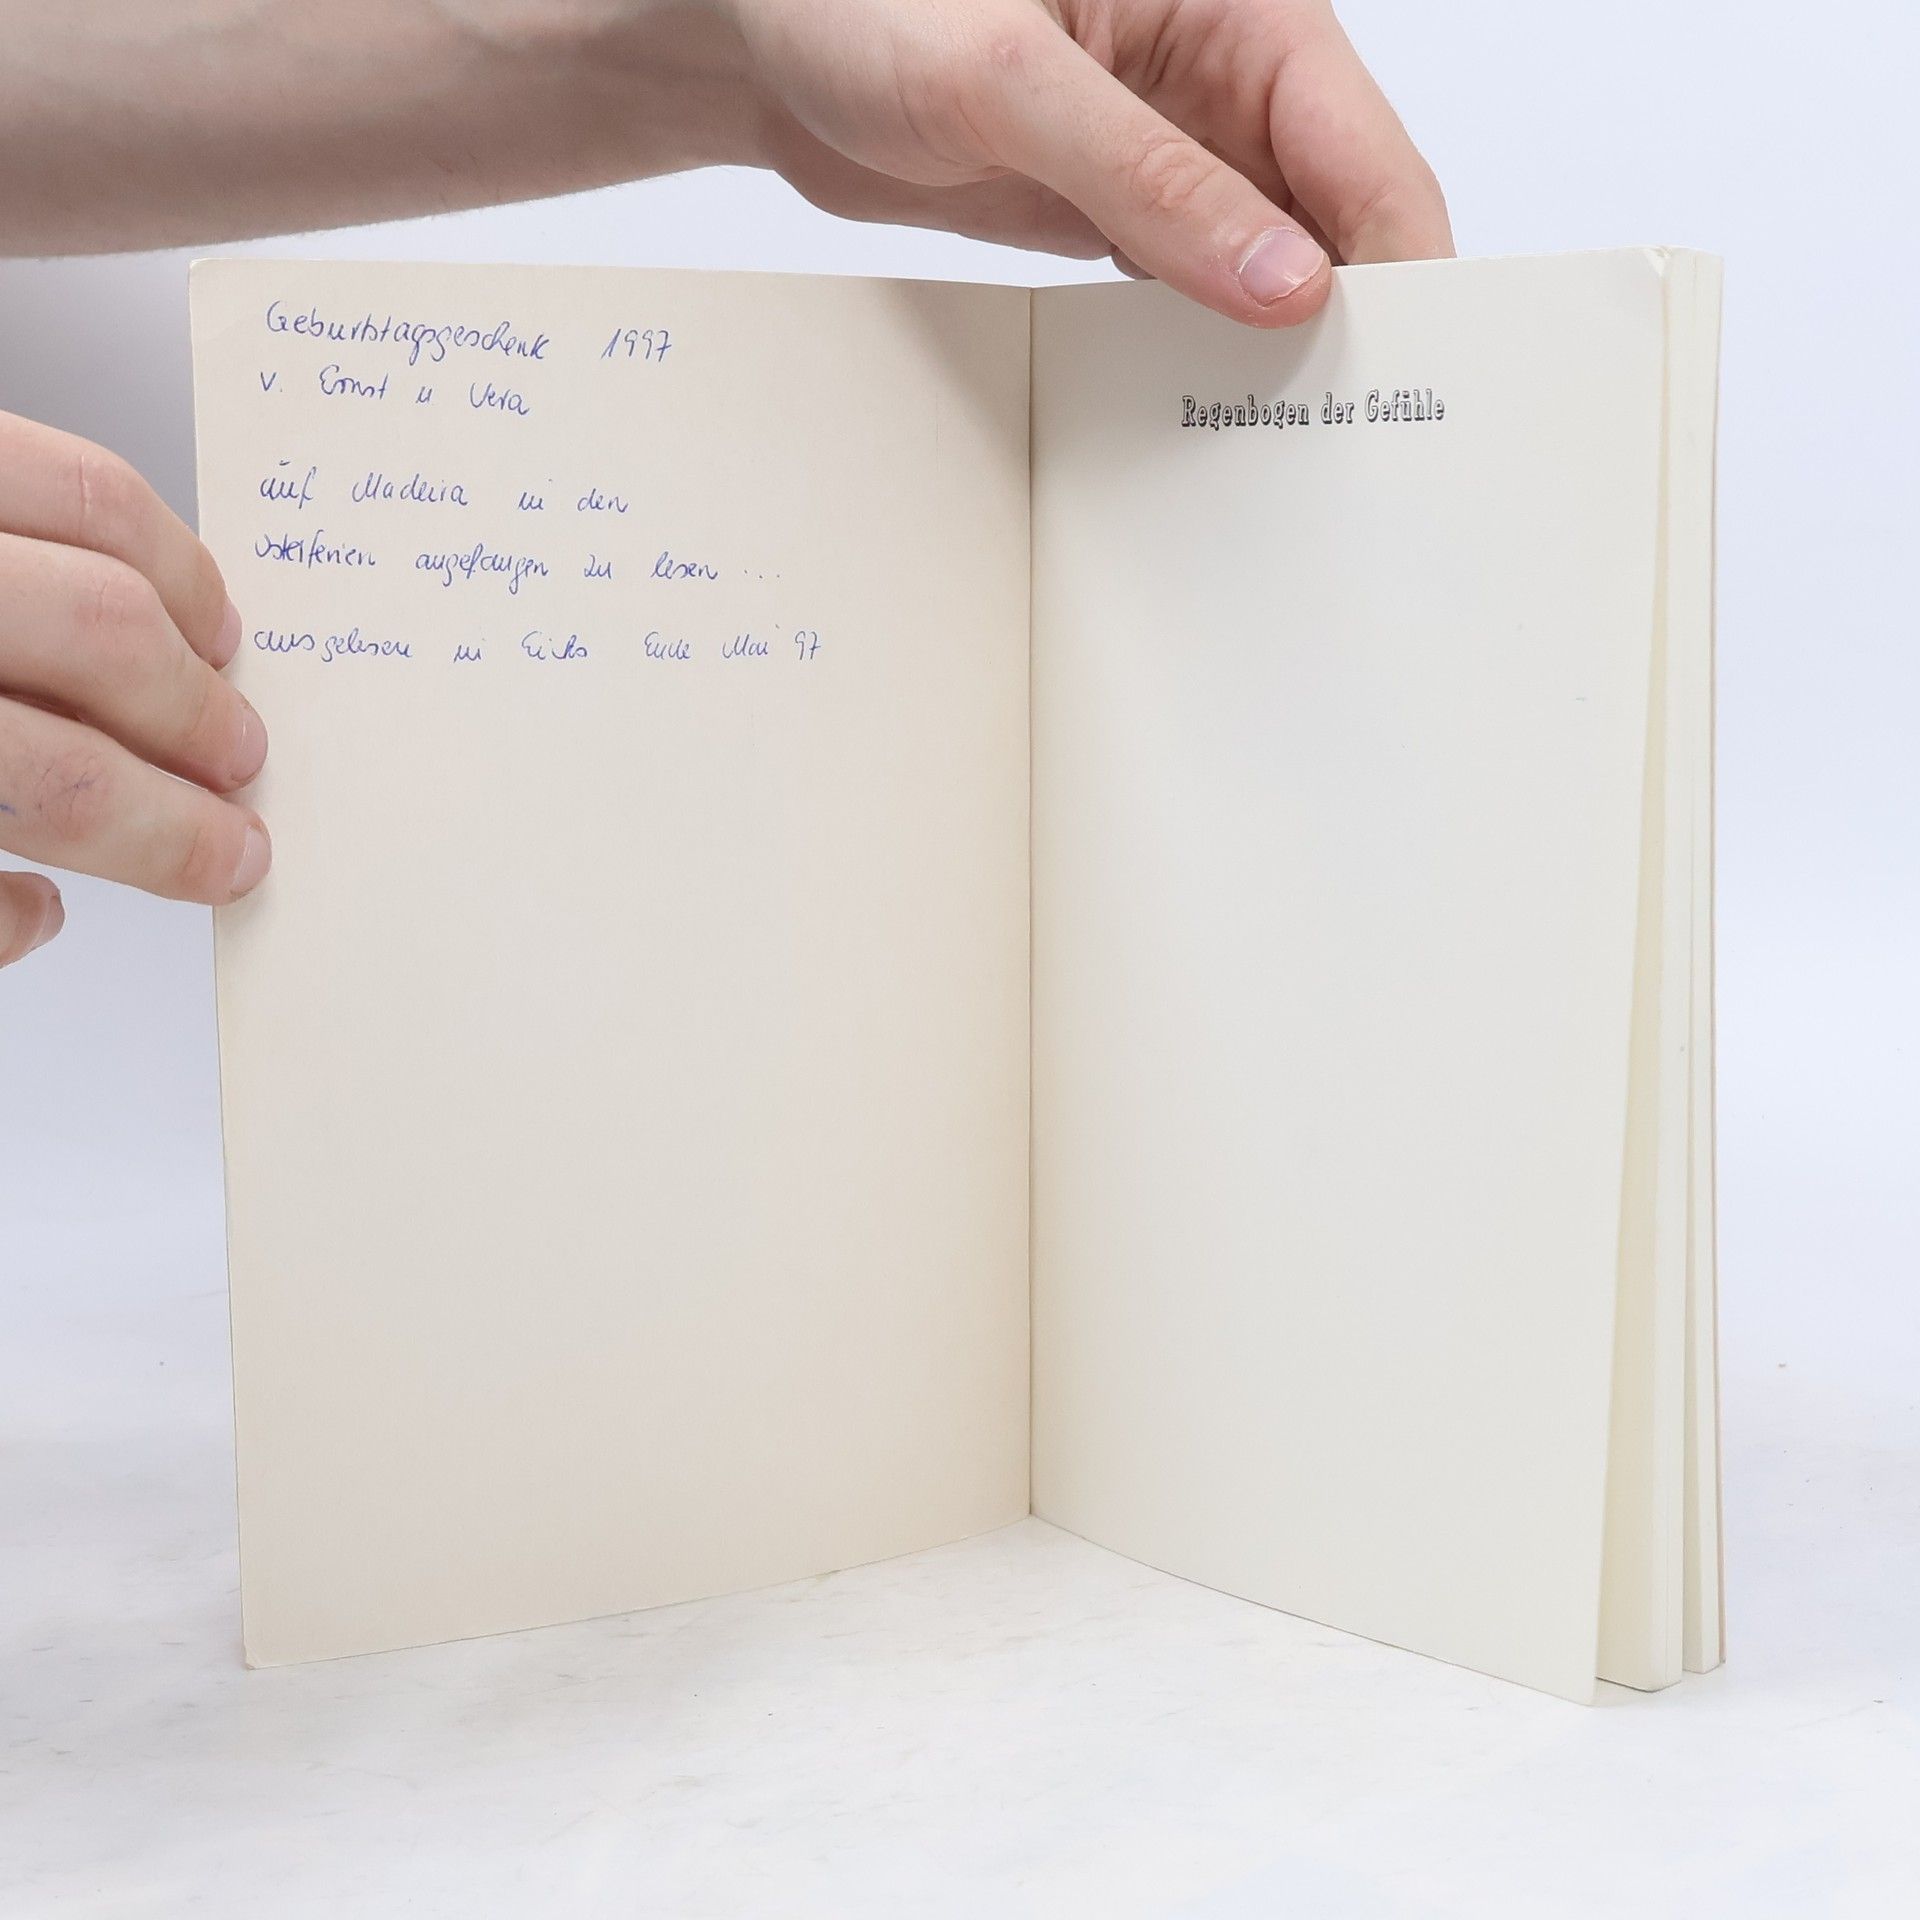 Geburtstagsgeschenk 1997
v. Ernst u Vera
auf Madeira in den
Osterferien angefangen zu lesen ...
ausgelesen in Ende Mai 97
Regenbogen der Gefühle